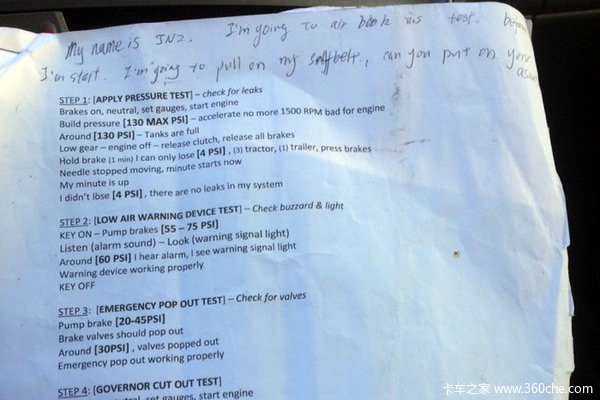 My name is JN2. I'm going to air brak ins test. Before
I'm start. I'm going to pull on my seatbelt, can you put on your
as
STEP 1: [APPLY PRESSURE TEST] – check for leaks
Brakes on, neutral, set gauges, start engine
Build pressure [130 MAX PSI] – accelerate no more 1500 RPM bad for engine
Around [130 PSI] – Tanks are full
Low gear – engine off – release clutch, release all brakes
Hold brake (1 min) I can only lose [4 PSI] , (3) tractor, (1) trailer, press brakes
Needle stopped moving, minute starts now
My minute is up
I didn't lose [4 PSI] , there are no leaks in my system
STEP 2: [LOW AIR WARNING DEVICE TEST] – Check buzzard & light
KEY ON – Pump brakes [55 – 75 PSI]
Listen (alarm sound) – Look (warning signal light)
Around [60 PSI] I hear alarm, I see warning signal light
Warning device working properly
KEY OFF
STEP 3: [EMERGENCY POP OUT TEST] – Check for valves
Pump brake [20-45PSI]
Brake valves should pop out
Around [30PSI] , valves popped out
Emergency pop out working properly
STEP 4: [GOVERNOR CUT OUT TEST]
neutral, set gauges, start engine
卡车之家 www.360che.com